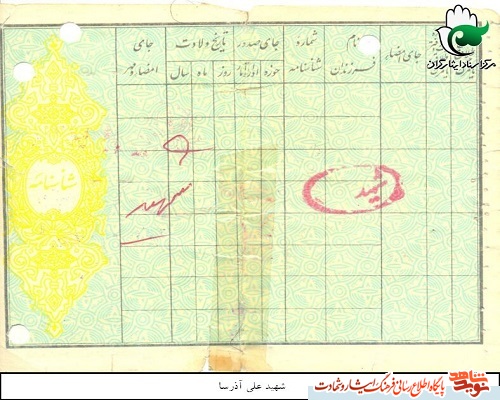 مرکز اسناد ایثارگران
جای
امضاء و مهر
تاریخ ولادت
روز
ماه
سال
جای صدور
حوزه
شماره
شناسنامه
نام
فرزندان
جای امضاء
شناسنامه
شهید
شهید علی آذرسا
نوید شاهد
پایگاه اطلاع رسانی فرهنگ ایثار و شهادت